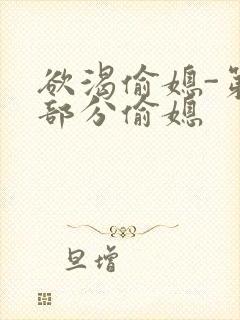 欲渴偷媳-第
部分偷媳
旦增